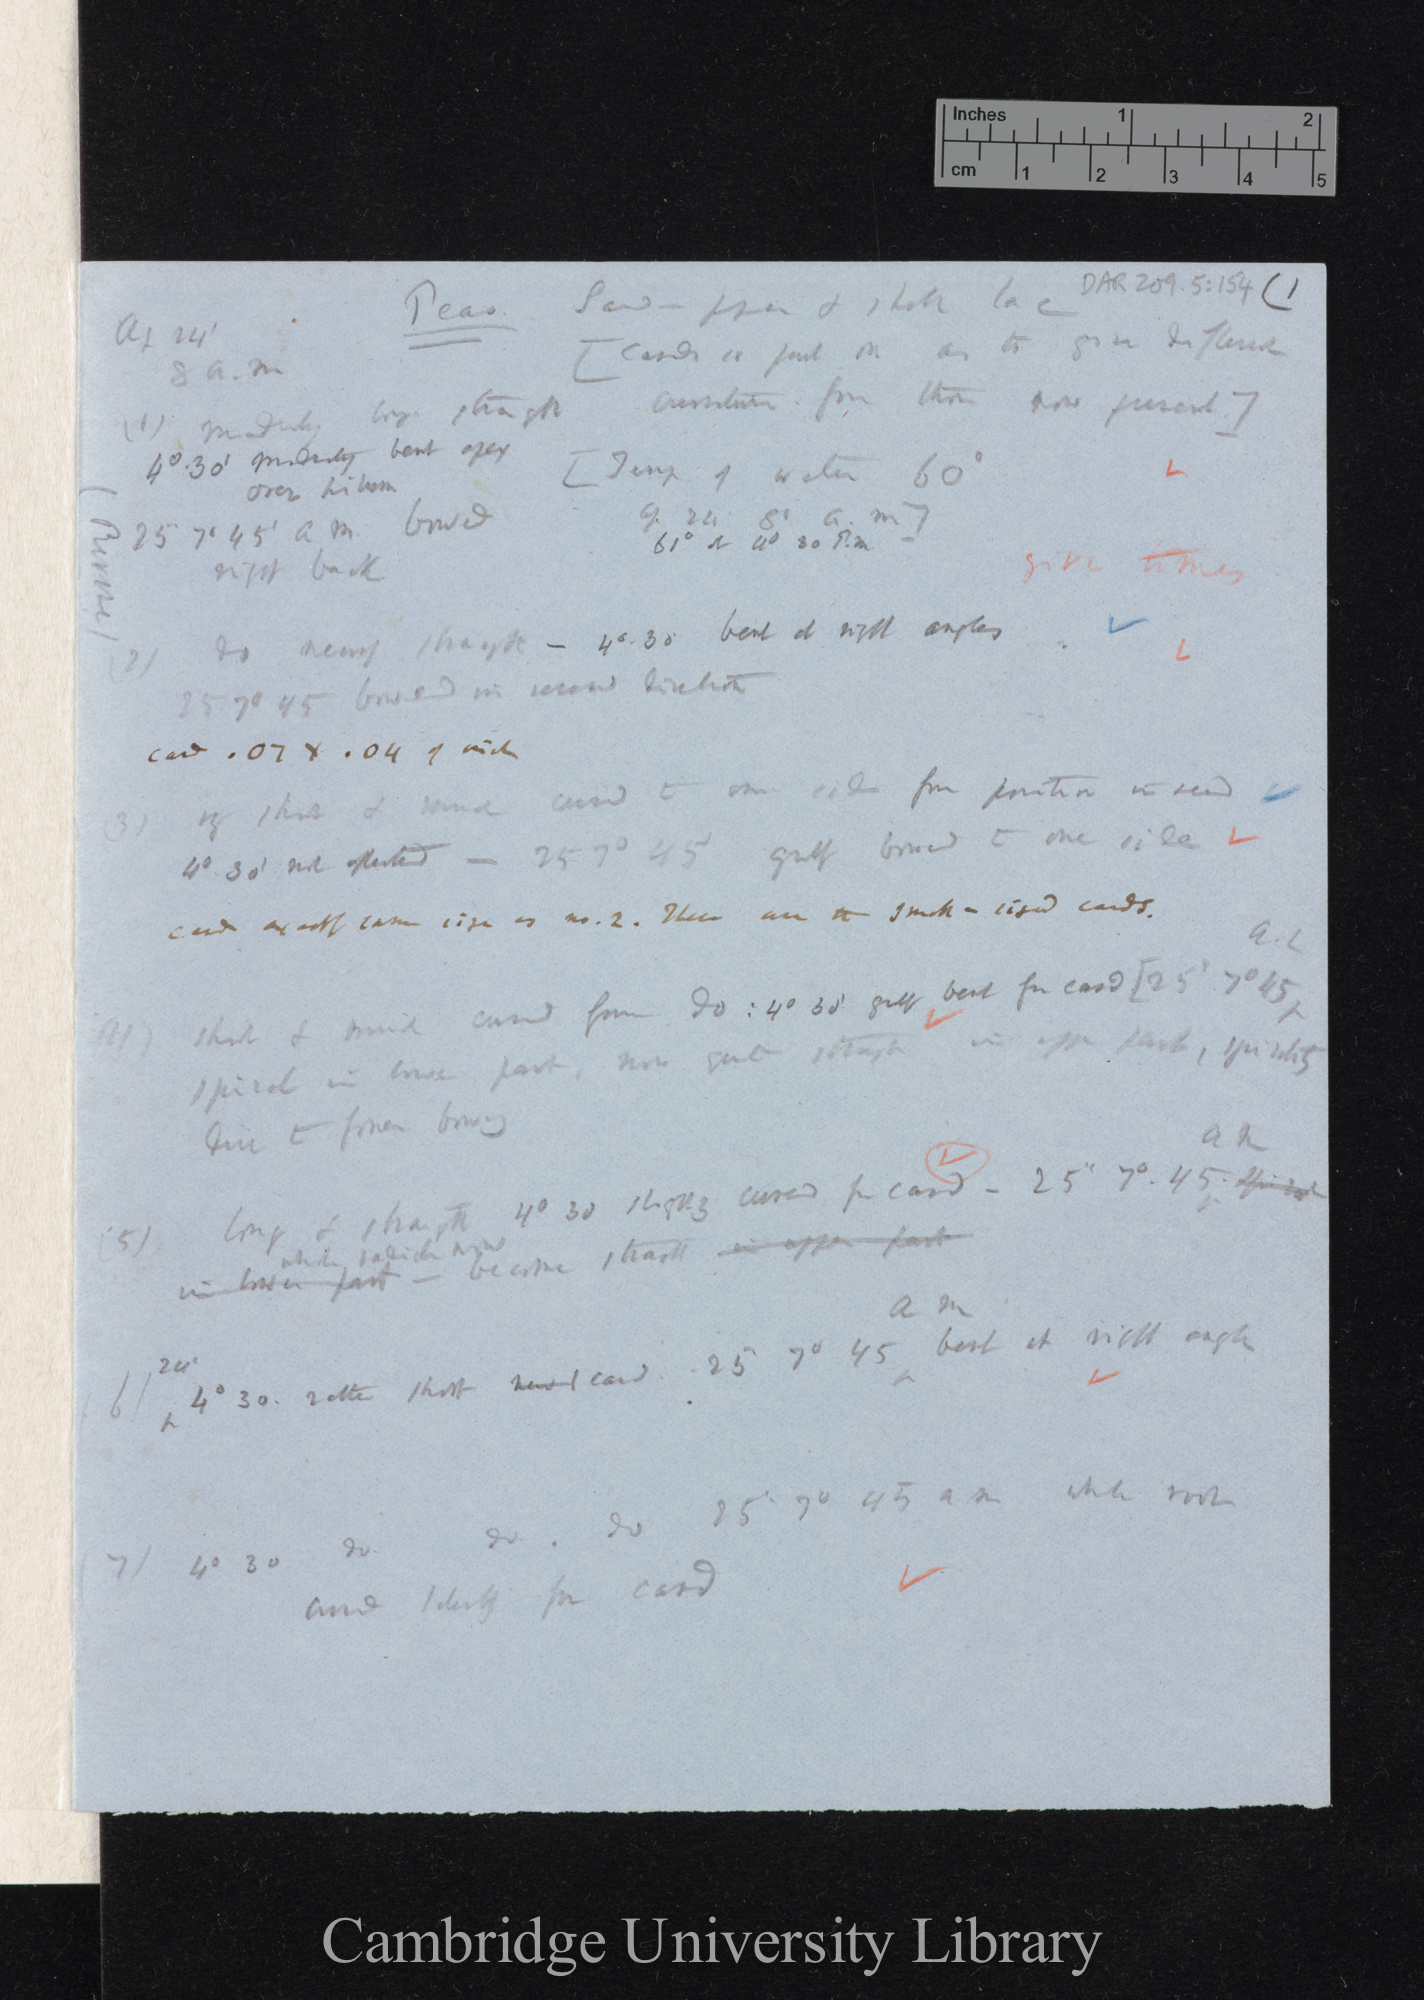 Inches 1 2
cm 1 2 3 4 5
DAR 209.5:154 (1
Peas. Sand-paper & shell lac
Ap 24'
8 a.m
[Cards so put on as to give different
curvature from those now present.]
(1) moderately long straight
4° 30' moderately bent apex
over hilum
[Temp of water 60°
24 8' a.m]
61° at 4° 30 P.m
25 7° 45' a m bowed
right back
give times
2) do nearly straight — 4° 30 bent at right angles
25 7° 45 bowed in second direction
card .07 X .04 of inch
(3) short & much curved to one side from position in seed
4° 30' not affected — 25 7° 45' greatly bowed to one side
card exactly same size as no. 2. These are the small-sized cards.
(4) short & much curved from do : 4° 30' greatly bent from card [25' 7° 45 a.m
spiral in lower part, now quite straight in upper part, spirality
due to former bowing
(5) long & straight 4° 30 slightly curved from card - 25" 7°. 45 a m
in lower part — whole radicle now become straight in upper part
(6) 24' 4° 30. rather short card. 25 7° 45 a m bent at right angle
7) 4° 30 do do. do 25' 7° 45 a m whole root
curved slightly from card
Cambridge University Library